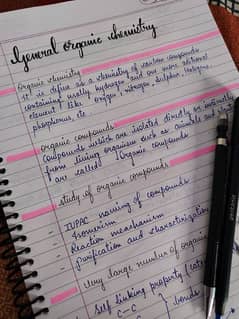 General organic chemistry
organic chemistry
it is define as a chemistry of carbon compounds
containing usally hydrogen and one more additional
element like oxygen, nitrogen, sulphur, halogens,
phosphorus, etc
organic compounds
compounds which are isolated directly or indirectly
from living organism such as animals and
are called organic compounds
study of organic compounds
- IUPAC naming of compounds
- Isomerism
- Reaction meachanism
- purification and charactrization
Very large number of organic
self linking property
C-C bonds